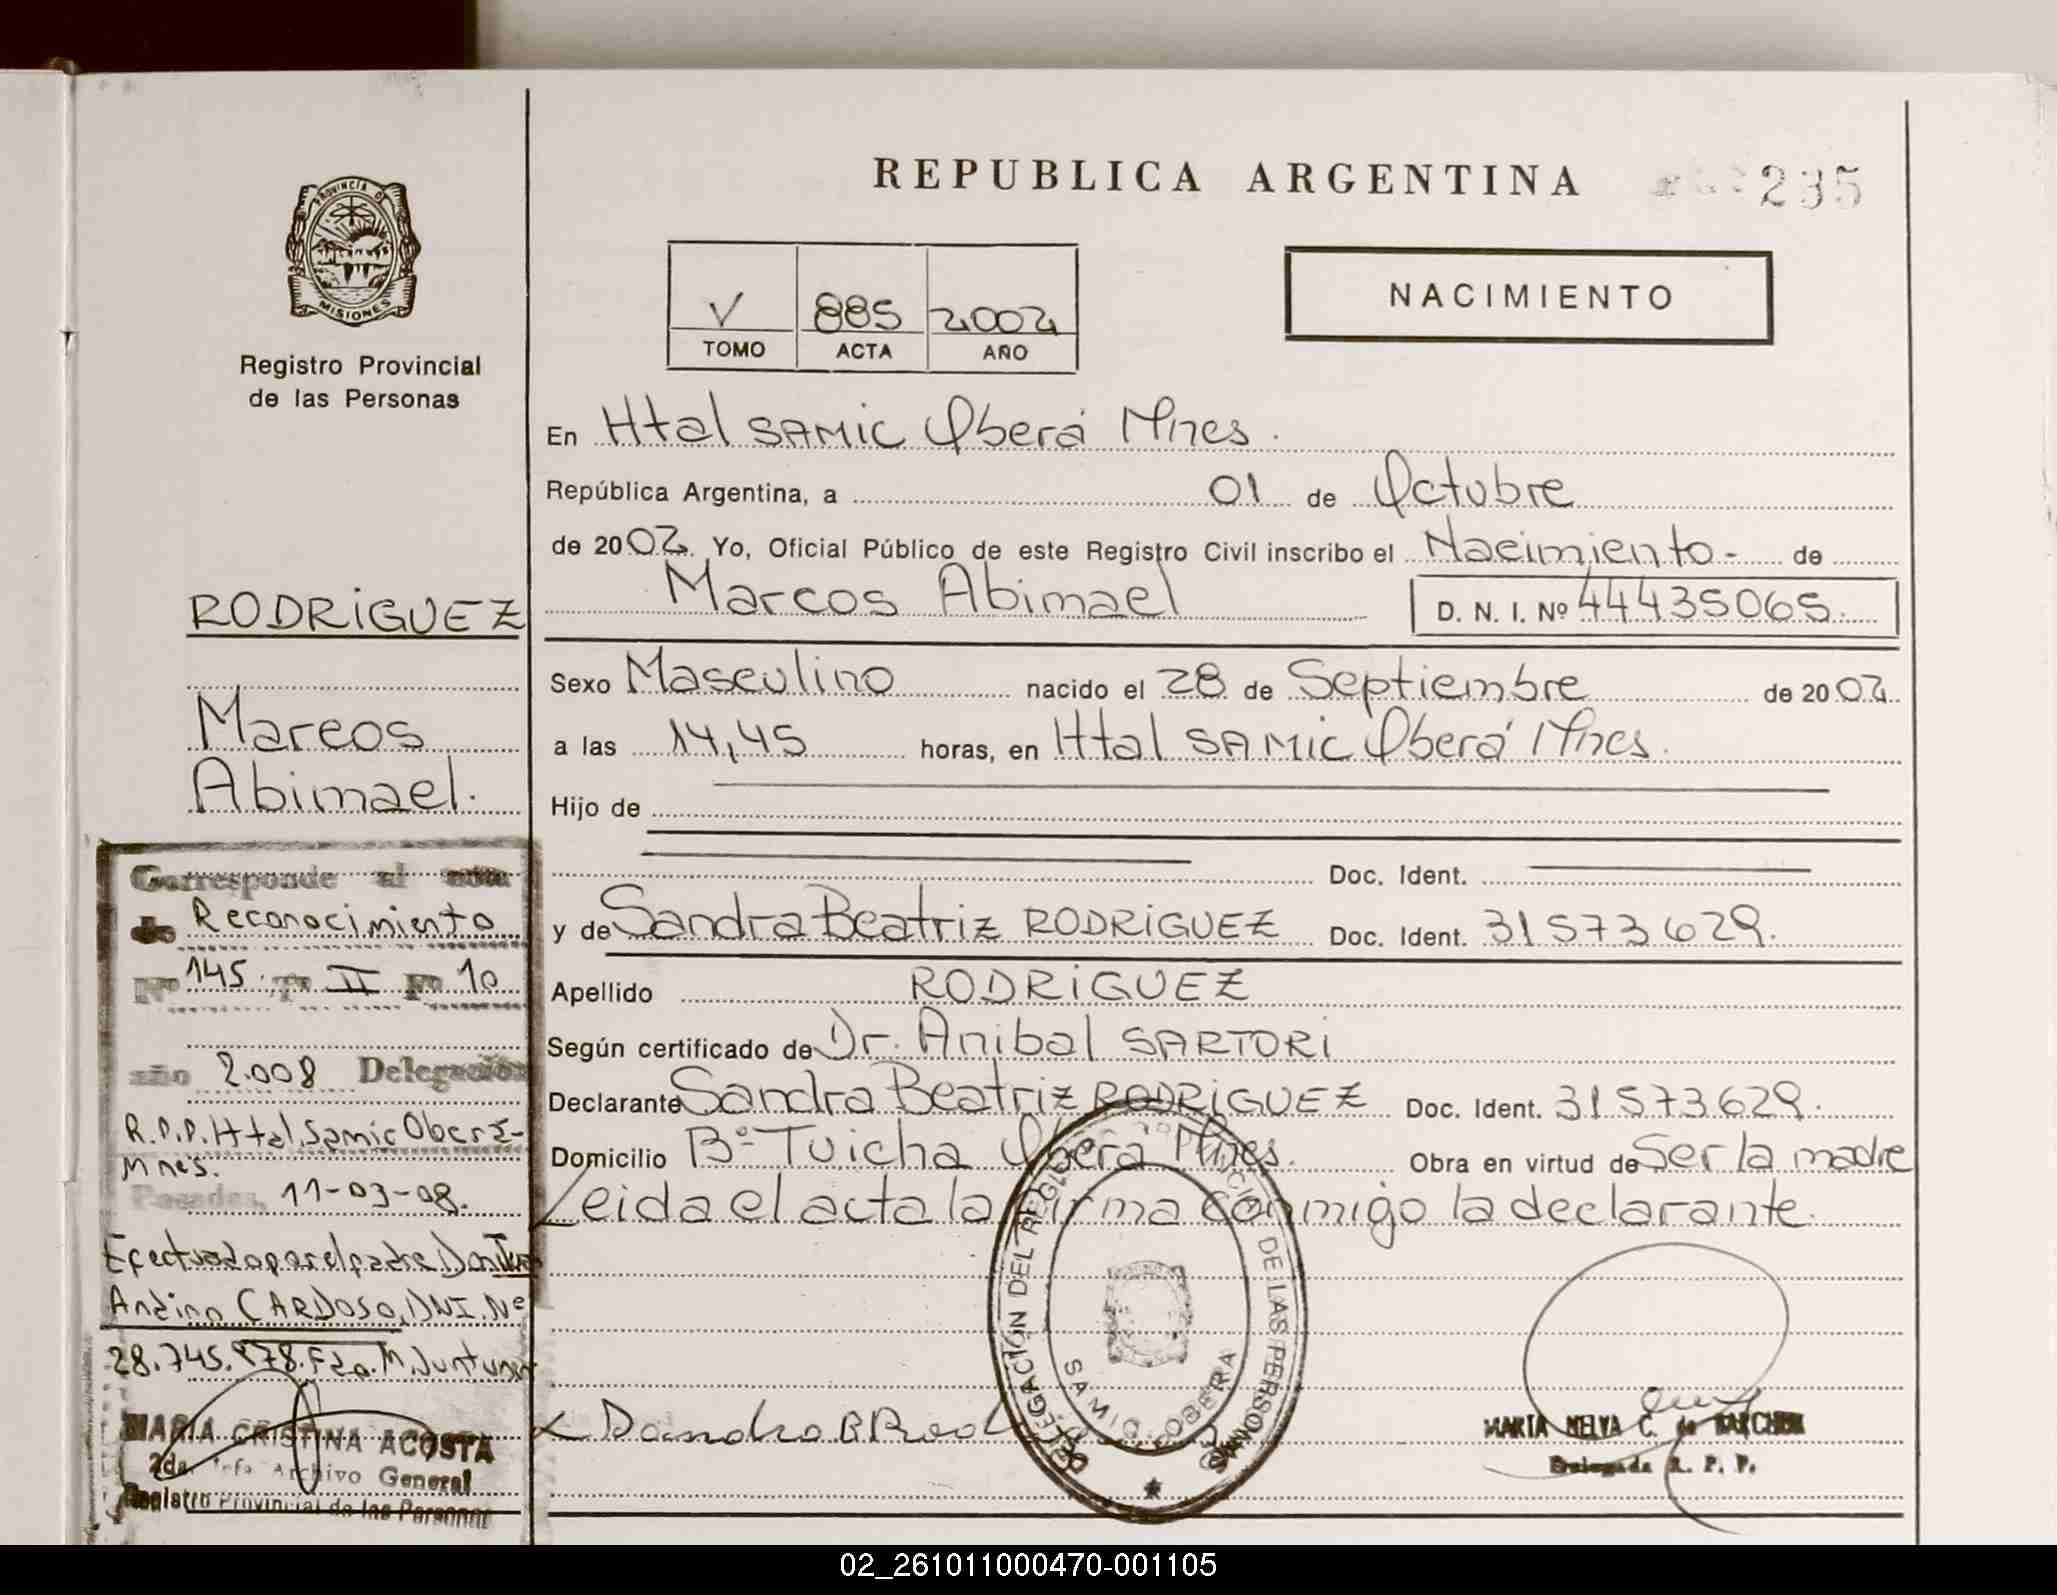 REPUBLICA ARGENTINA
235
PROVINCIA D
MISIONES
Registro Provincial
de las Personas
NACIMIENTO
V 885 2002
TOMO ACTA AÑO
En Htal SAMIC Oberá Mnes.
República Argentina, a 01 de Octubre
de 2002. Yo, Oficial Público de este Registro Civil inscribo el Nacimiento - de
Marcos Abimael D. N. I. Nº 44435065.
Sexo Masculino nacido el 28 de Septiembre de 2002
a las 14,45 horas, en Htal SAMIC Oberá Mnes.
Hijo de
Doc. Ident.
y de Sandra Beatriz RODRIGUEZ Doc. Ident. 31573629.
Apellido RODRIGUEZ
Según certificado de Dr. Anibal SARTORI
Declarante Sandra Beatriz RODRIGUEZ Doc. Ident. 31573629.
Domicilio Bº Tuicha Oberá Mnes. Obra en virtud de Ser la madre
Leida el acta la firma conmigo la declarante.
RODRIGUEZ
Marcos
Abimael.
Corresponde al acta
de Reconocimiento
Nº 145 Tº II Fº 10
año 2.008 Delegación
R.P.P. Htal. Samic Oberá-
Mnes.
Posadas, 11-03-08.
Efectuado por el padre Don
Andino CARDOSO, DNI. Nº
28.745.878. Fdo. M.
MARIA CRISTINA ACOSTA
2da. Jefa Archivo General
Registro Provincial de las Personas
DELEGACIÓN DEL REGISTRO PROVINCIAL DE LAS PERSONAS
SAMIC - OBERA
MARIA MELVA C. de
Delegada R. P. P.
02_261011000470-001105